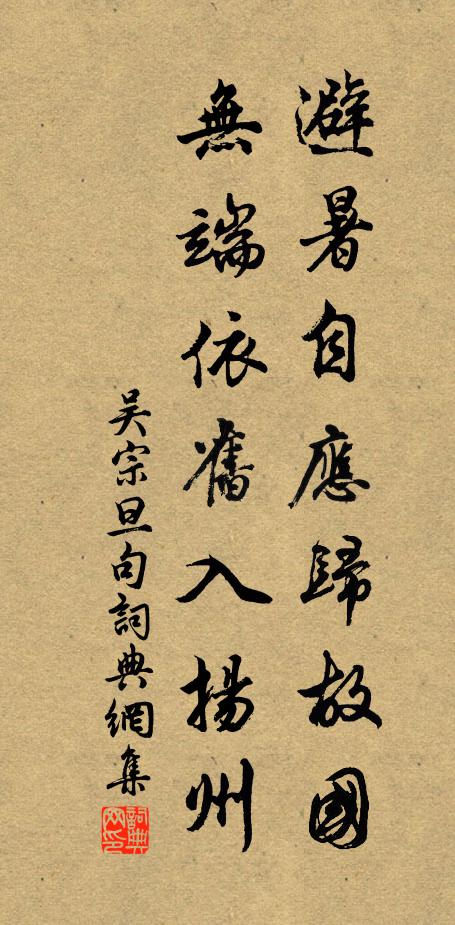 避暑自應歸故國
無端依舊入揚州
吴宗旦句詞典網集
詞典
网印